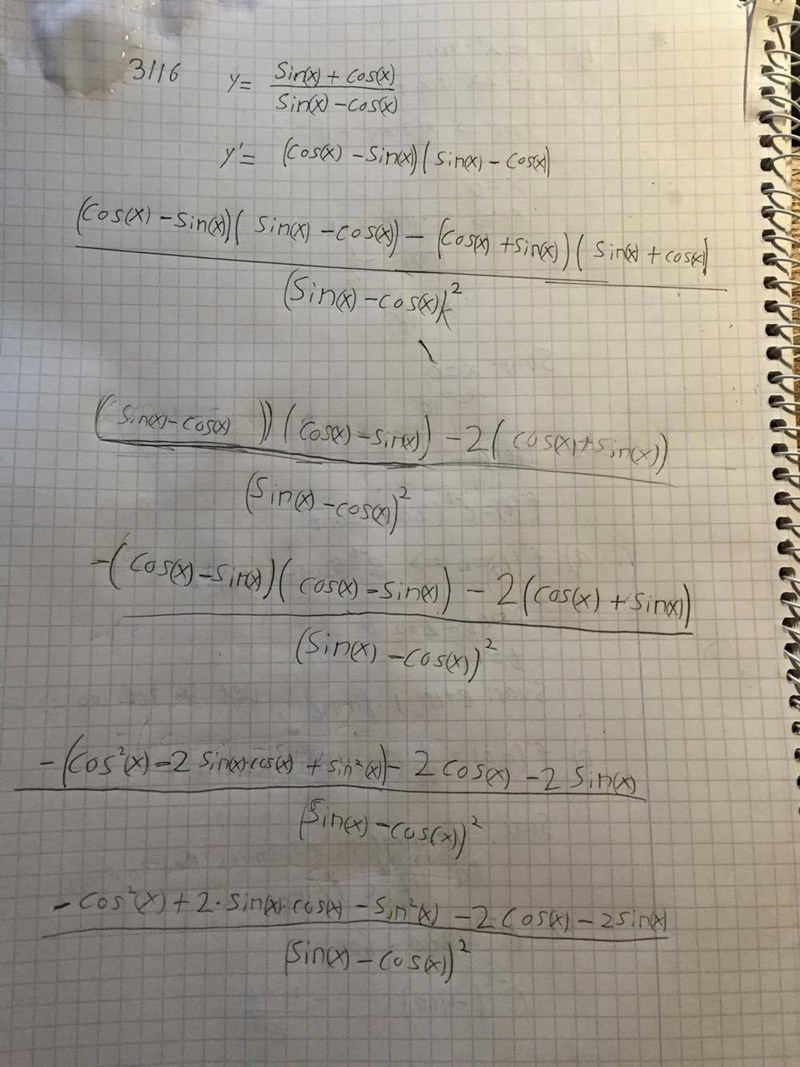 3116 y = (Sin(x) + cos(x))/(Sin(x) - cos(x))
y' = (cos(x) - Sin(x))(Sin(x) - cos(x)
((cos(x) - Sin(x))(Sin(x) - cos(x)) - (cos(x) + sin(x))(Sin(x) + cos(x))/(Sin(x) - cos(x))²
((Sin(x) - cos(x)))(cos(x) - sin(x)) - 2(cos(x) + sin(x))/(Sin(x) - cos(x))²
-(cos(x) - Sin(x))(cos(x) - Sin(x)) - 2(cos(x) + Sin(x))/(Sin(x) - cos(x))²
-(cos²(x) - 2 Sin(x)·cos(x) + sin²(x)) - 2 cos(x) - 2 Sin(x)/(Sin(x) - cos(x))²
-cos²(x) + 2·Sin(x)·cos(x) - Sin²(x) - 2 cos(x) - 2Sin(x)/(Sin(x) - cos(x))²